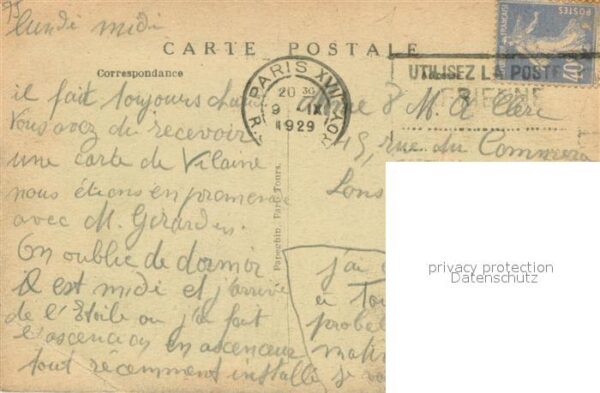 lundi midi
CARTE POSTALE
Correspondance
PARIS XVII
20 30
9 IX
1929
UTILISEZ LA POSTE
AERIENNE
40
il fait toujours chaud
Vous avez du recevoir
une carte de Vilaine
nous étions en promenade
avec M. Girardin.
On oublie de dormir
il est midi et j'arrive
de l'Etoile ou j'ai fait
l'ascension en ascenseur
tout récemment installé je
M. & Mme
45, rue du Commerce
Lons
j'ai
Tou
probe
matin
Pareghin, Paris Tours.
privacy protection
Datenschutz